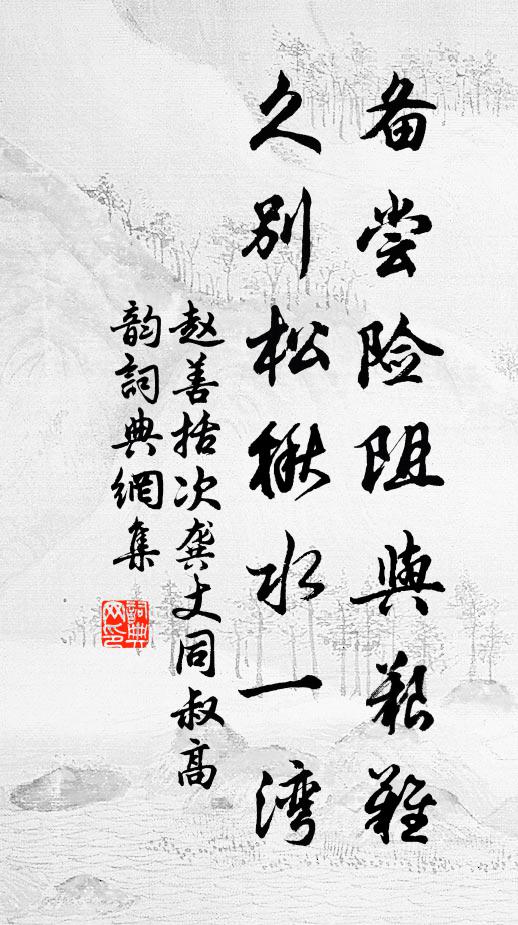 备尝险阻与艰难
久别松楸水一湾
赵善括次龚丈同叔高
韵詞典網集
詞典网印